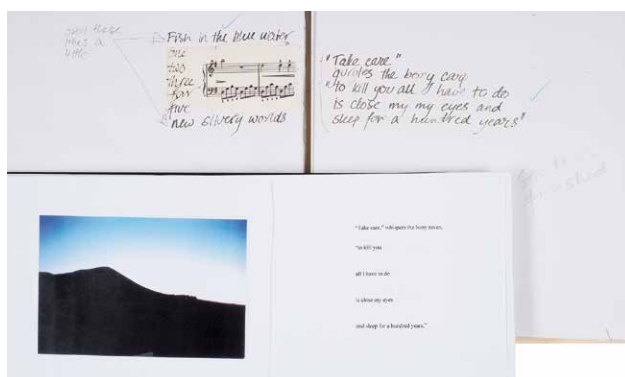 even these
lines a
little
Fish in the blue water
one
two
three
four
five
new silvery worlds
"Take care"
the bony
"to kill you all I have to do
is close my my eyes and
sleep for a hundred years"
"Take care," whispers the bony
"to kill you
all I have to do
is close my eyes
and sleep for a hundred years."